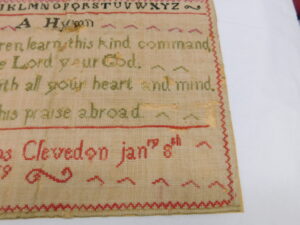 JKLMNOPQRSTUVWXYZ
A Hymn
ren, learn this kind command
Lord your God.
ith all your heart and mind
his praise abroad
Clevedon janry 8th